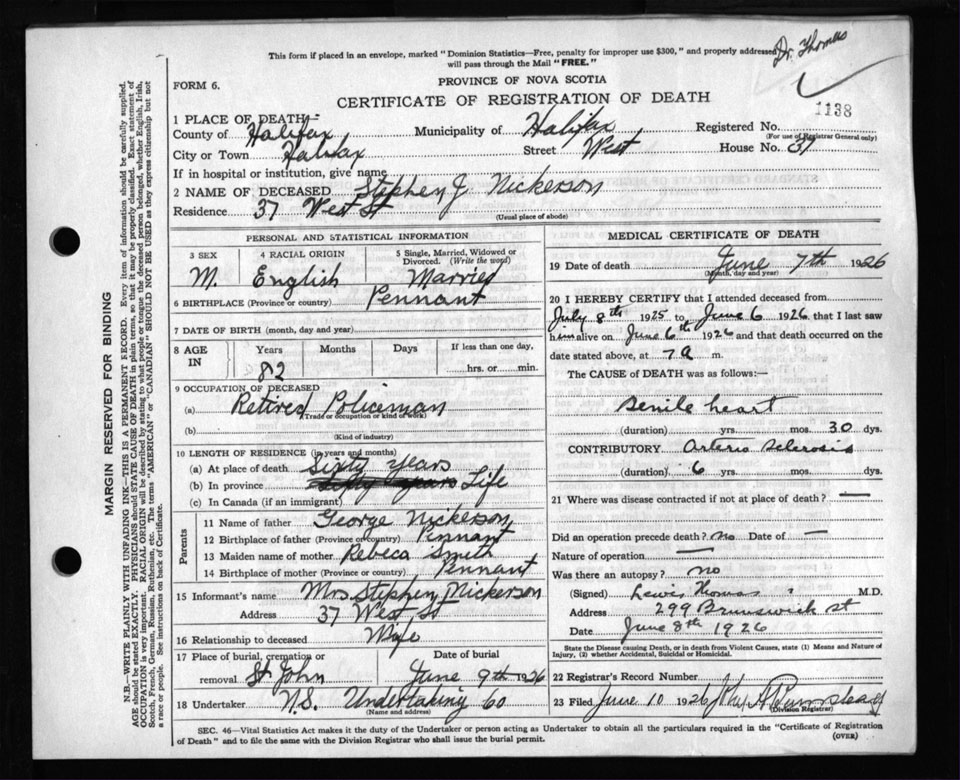 This form if placed in an envelope, marked "Dominion Statistics—Free, penalty for improper use $300," and properly addressed
will pass through the Mail "FREE."
Dr. Thomas
FORM 6.
PROVINCE OF NOVA SCOTIA
CERTIFICATE OF REGISTRATION OF DEATH
1138
1 PLACE OF DEATH—
County of Halifax Municipality of Halifax Registered No.
(For use of Registrar General only)
City or Town Halifax Street West House No. 37
If in hospital or institution, give name
2 NAME OF DECEASED Stephen J. Nickerson
Residence 37 West St
(Usual place of abode)
PERSONAL AND STATISTICAL INFORMATION
3 SEX M.
4 RACIAL ORIGIN English
5 Single, Married, Widowed or Divorced. (Write the word) Married
6 BIRTHPLACE (Province or country) Pennant
7 DATE OF BIRTH (month, day and year)
8 AGE IN Years 82 Months Days If less than one day, hrs. or min.
9 OCCUPATION OF DECEASED
(a) Retired Policeman
(Trade or occupation or kind of work)
(b)
(Kind of industry)
10 LENGTH OF RESIDENCE (in years and months)
(a) At place of death Sixty years
(b) In province Life
(c) In Canada (if an immigrant)
Parents
11 Name of father George Nickerson
12 Birthplace of father (Province or country) Pennant
13 Maiden name of mother Rebeca Smith
14 Birthplace of mother (Province or country) Pennant
15 Informant's name Mrs Stephen Nickerson
Address 37 West St
16 Relationship to deceased Wife
17 Place of burial, cremation or removal St John Date of burial June 9th 1926
18 Undertaker N.S. Undertaking Co
(Name and address)
MEDICAL CERTIFICATE OF DEATH
19 Date of death June 7th 1926
(Month, day and year)
20 I HEREBY CERTIFY that I attended deceased from
July 8th 1925 to June 6 1926 that I last saw
him alive on June 6th 1926 and that death occurred on the
date stated above, at 7 a m.
The CAUSE of DEATH was as follows:—
Senile heart
(duration) yrs. mos. 30 dys.
CONTRIBUTORY Arterio Sclerosis
(duration) 6 yrs. mos. dys.
21 Where was disease contracted if not at place of death? —
Did an operation precede death? no Date of —
Nature of operation —
Was there an autopsy? no
(Signed) Lewis Thomas M.D.
Address 299 Brunswick St
Date June 8th 1926
State the Disease causing Death, or in death from Violent Causes, state (1) Means and Nature of
Injury, (2) whether Accidental, Suicidal or Homicidal.
22 Registrar's Record Number
23 Filed June 10 1926
(Division Registrar)
SEC. 46—Vital Statistics Act makes it the duty of the Undertaker or person acting as Undertaker to obtain all the particulars required in the "Certificate of Registration
of Death" and to file the same with the Division Registrar who shall issue the burial permit.
(OVER)
MARGIN RESERVED FOR BINDING
N.B.—WRITE PLAINLY WITH UNFADING INK—THIS IS A PERMANENT RECORD. Every item of information should be carefully supplied.
AGE should be stated EXACTLY. PHYSICIANS should STATE CAUSE OF DEATH in plain terms, so that it may be properly classified. Exact statement of
OCCUPATION is very important. RACIAL ORIGIN will be described by stating to what people or tongue the deceased person belonged, whether English, Irish,
Scotch, French, German, Russian, Ruthenian, etc. The terms "AMERICAN" or "CANADIAN" SHOULD NOT BE USED as they express citizenship but not
a race or people. See instructions on back of Certificate.